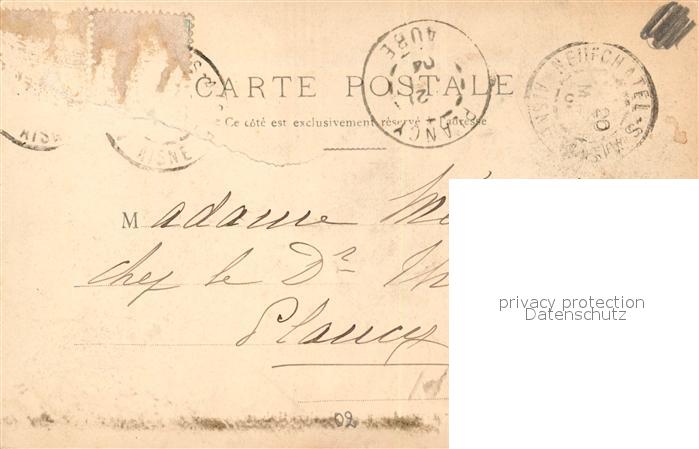 CARTE POSTALE
Ce côté est exclusivement réservé à l'adresse
PLANCY
AUBE
21
04
NEUFCHATEL-S
AISNE
20
AISNE
AISNE
Madame
chez le Dr
Plancy
privacy protection
Datenschutz
02